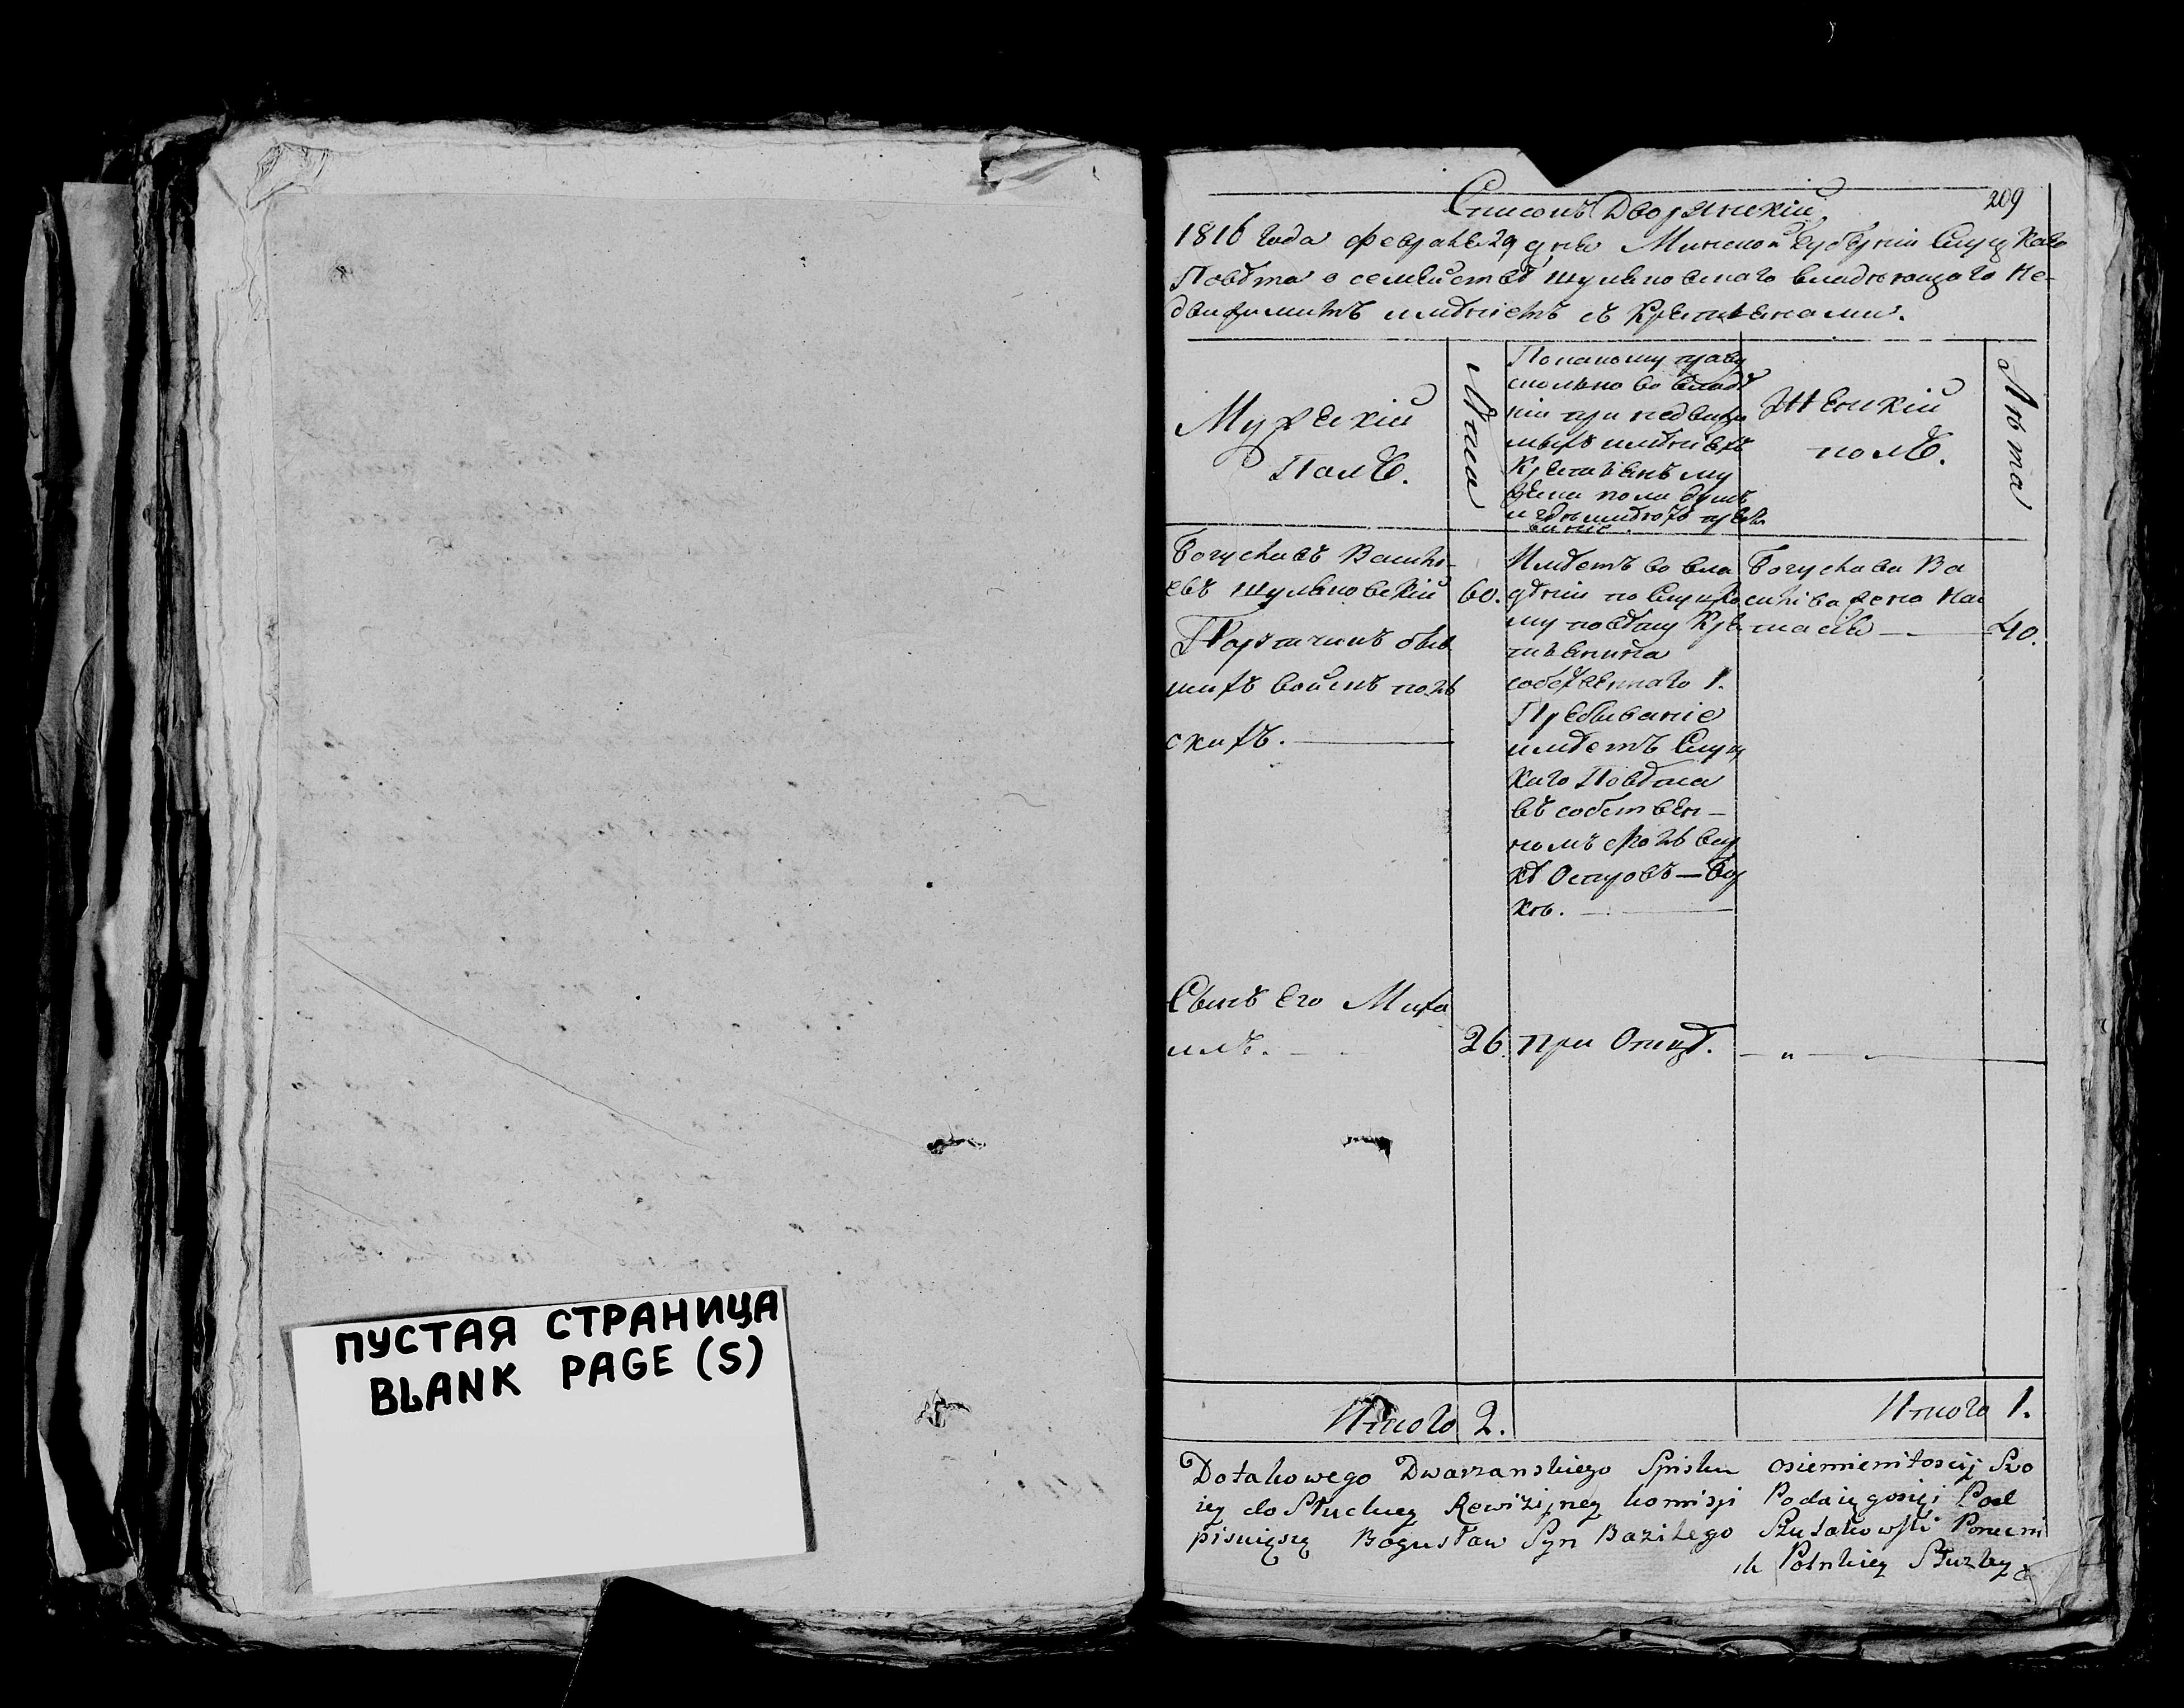 ПУСТАЯ СТРАНИЦА
BLANK PAGE (S)
209
Списокъ Дворянскій
1816 года февраля 29 дня Минской Губерніи Слуцкаго
Повѣта о семействѣ Шулаковскаго владѣющаго не-
движимымъ имѣніемъ съ Крестьянами.
Мужескій
Полъ.
Лѣта
По какому праву
сколько во владѣ
ніи при недвижи
мыхъ имѣніяхъ
Крестьянъ му
жеска пола душъ
и гдѣ имѣютъ пребы
ваніе.
Женскій
полъ.
Лѣта
Богуславъ Василь-
евъ Шулаковскій
Порутчикъ быв
шихъ войскъ поль
скихъ.
60.
Имѣетъ во вла
дѣніи по Слуцко
му повѣту Кре
стьянина
собственнаго 1.
Пребываніе
имѣетъ Слуц
каго Повѣта
въ собствен-
номъ
Островѣ
Богуслава Ва
сильева жена
40.
Сынъ Его Миха
илъ.
26.
при Отцѣ.
"
Итого 2.
Итого 1.
Do takowego Dwarzanskiego Spisku o siemiemitoscij Swo
iey do Słuckiey Rewizijney komisji Podaiącgosię Pod
pisuięsię Bogusław Syn Bazilego Szulakowski Poruczni
ik Polskiey Służby